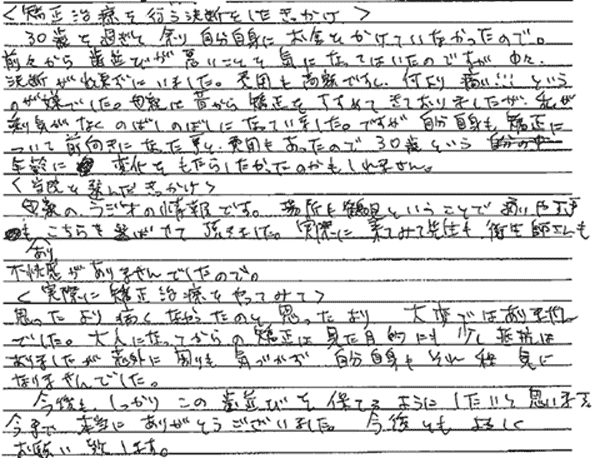 <矯正治療を行う決断をしたきっかけ>
30歳を過ぎて余り自分自身にお金をかけていなかったので。
前々から歯並びが悪いことを気になってはいたのですが中々、
決断が出来ずにいました。費用も高額ですし、何より痛い!!!という
のが嫌でした。母親は昔から矯正をすすめてきておりましたが、私が
勇気がなくのばしのばしになっていました。ですが自分自身も矯正に
ついて前向きになった事と、費用もあったので30歳という
年齢に変化をもたらしたかったのかもしれません。
<当院を選んだきっかけ>
母親の、ラジオの情報です。場所も鶴見ということで
もあり こちらを選ばせて頂きました。実際に来てみて先生も衛生師さんも
不快感がありませんでしたので。
<実際に矯正治療をやってみて>
思ったより痛くなかったのと思ったより大変ではありません
でした。大人になってからの矯正は見た目的にも少し抵抗は
ありましたが意外に周りも気づかず自分自身もそれ程気に
なりませんでした。
今後も、しっかりこの歯並びを保てるようにしたいと思います。
今まで本当にありがとうございました。今後ともよろしく
お願い致します。